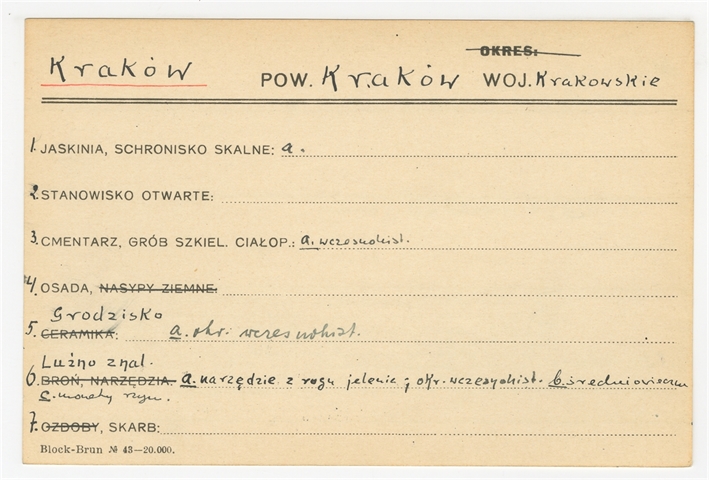 OKRES:
Kraków POW. Kraków WOJ. Krakowskie
1. JASKINIA, SCHRONISKO SKALNE: a.
2. STANOWISKO OTWARTE:
3. CMENTARZ, GRÓB SZKIEL. CIAŁOP.: a. wczesnohist.
4. OSADA, NASYPY ZIEMNE:
Grodzisko
5. CERAMIKA: a. okr. wczesnohist.
Luźno znal.
6. BROŃ, NARZĘDZIA. a. narzędzie z rogu jelenia; okr. wczesnohist. b. średniowieczn
c. monety rzym.
7. OZDOBY, SKARB:
Block-Brun № 43—20.000.